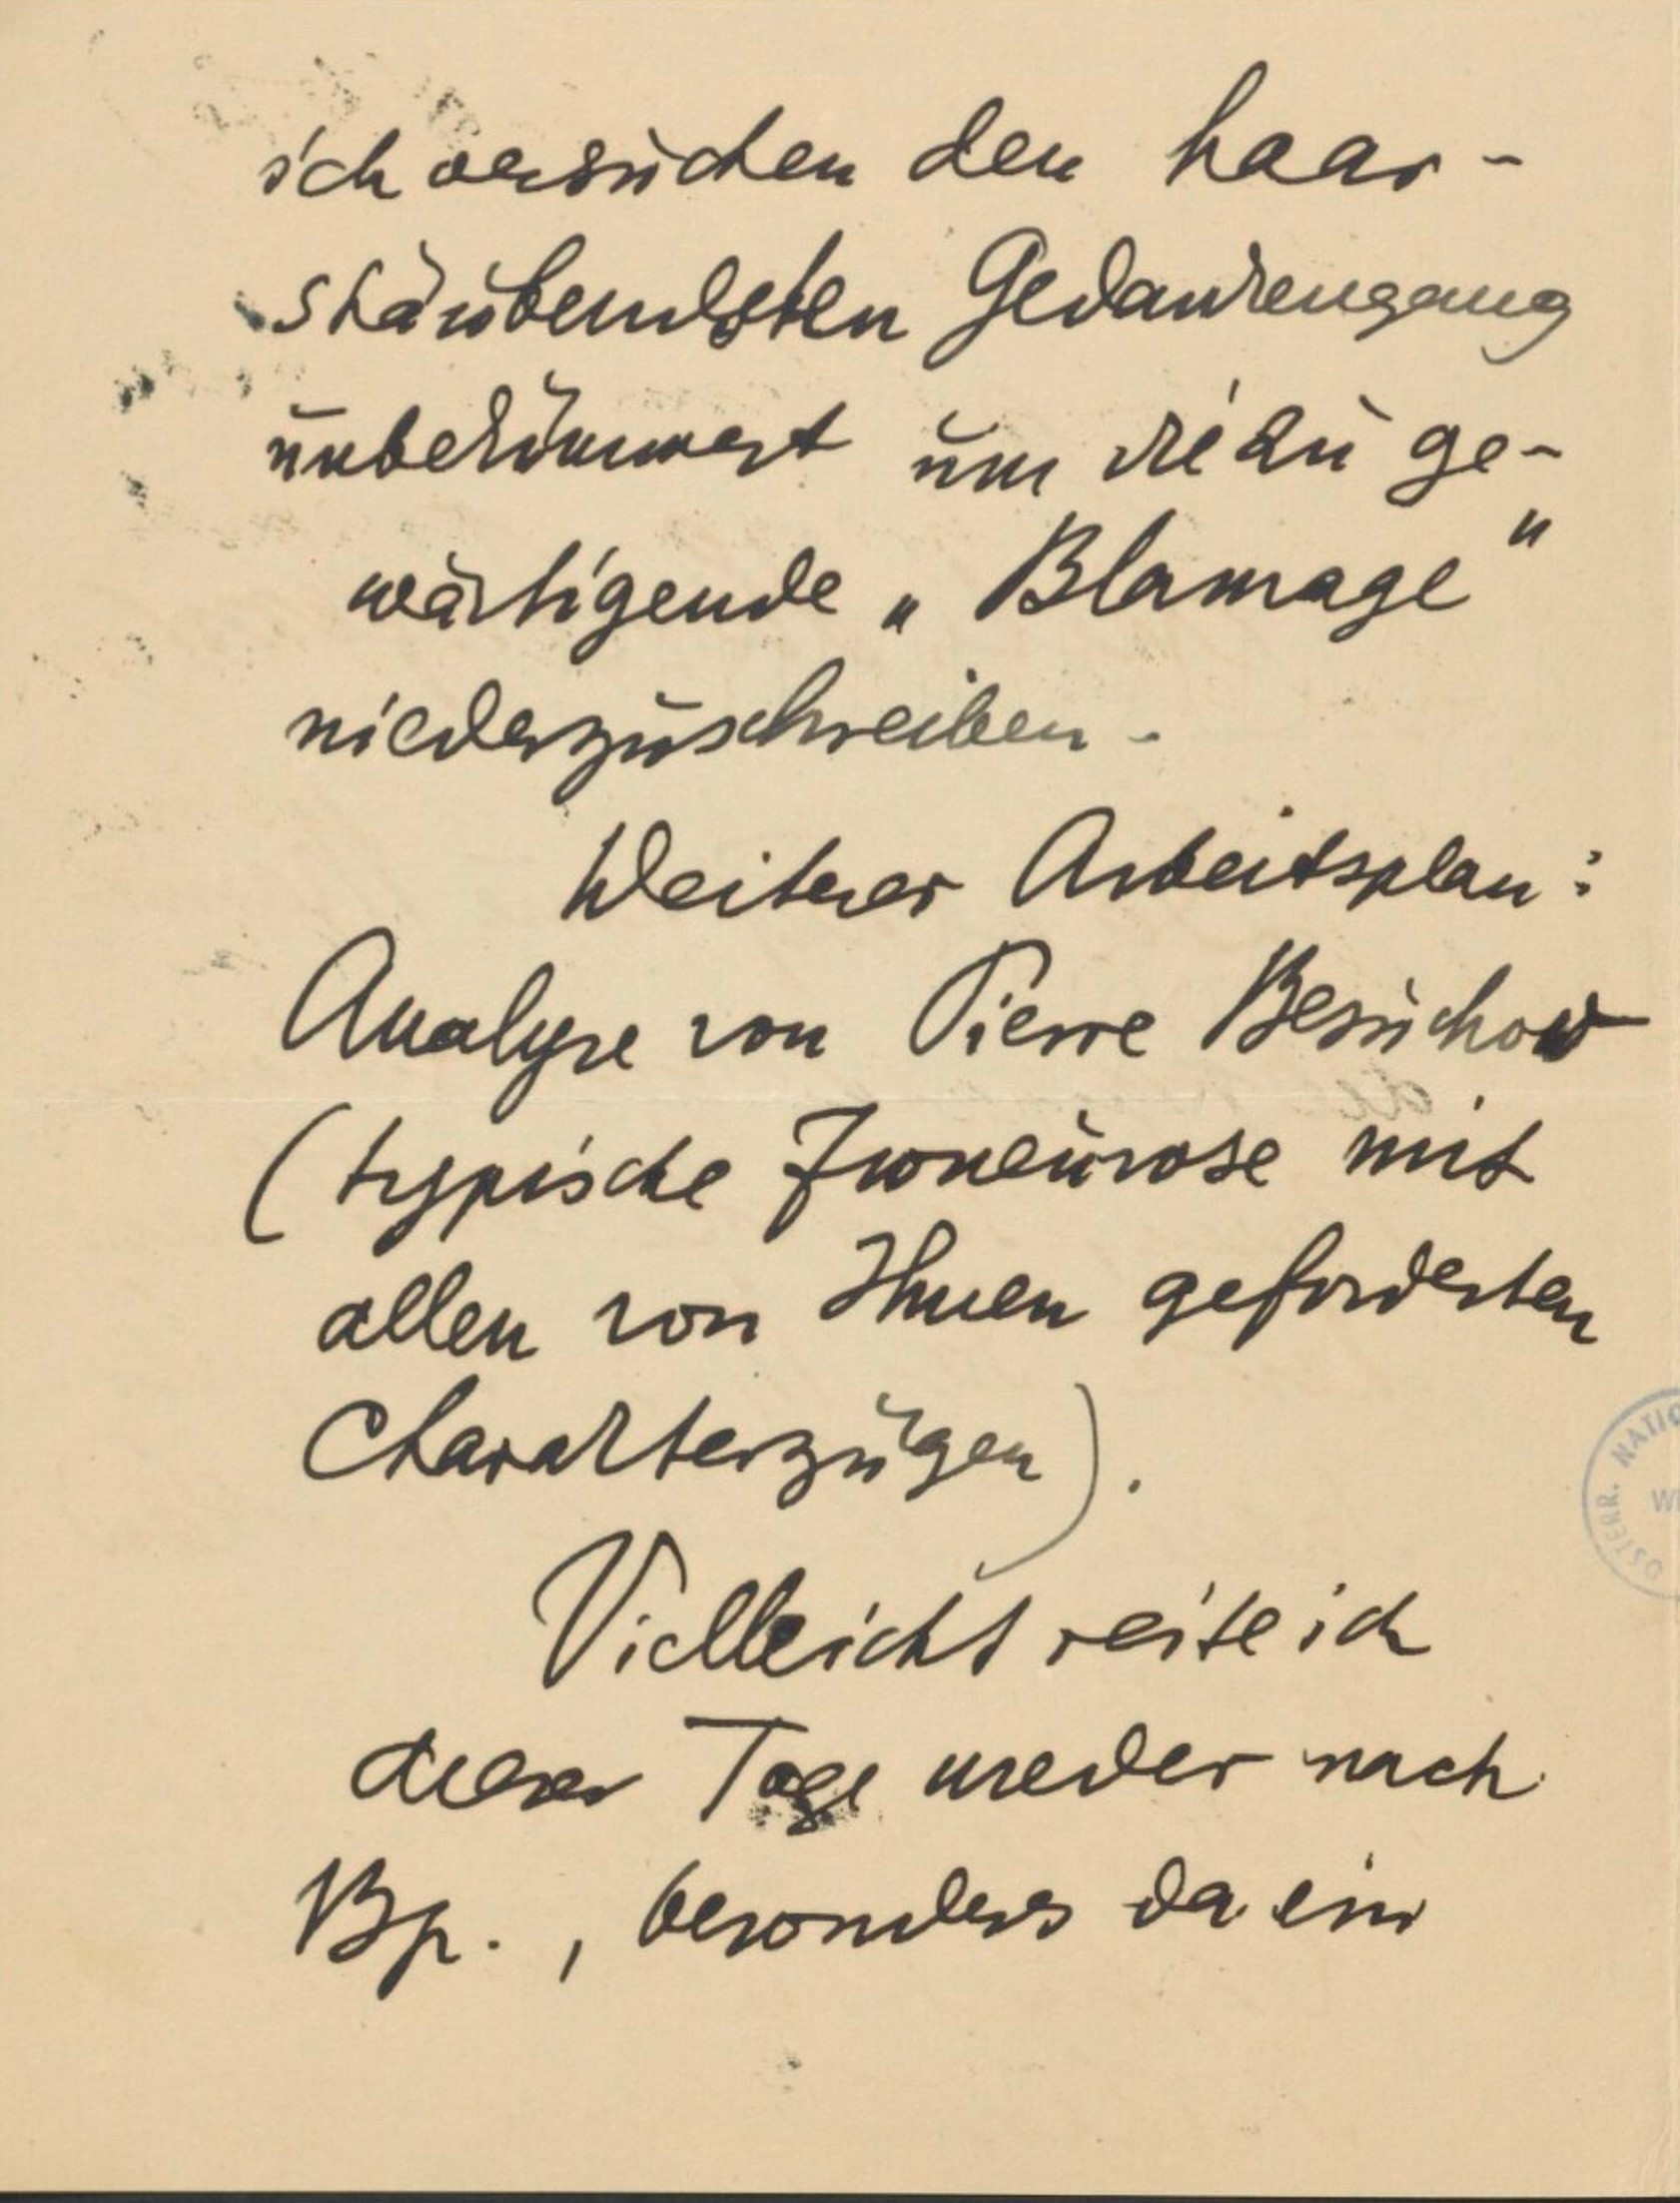 ich versuchen den haar-
sträubendsten Gedankengang
unbekümmert um die zu ge-
wärtigende „Blamage"
niederzuschreiben.
Weiterer Arbeitsplan:
Analyse von Pierre Besuchow
(typische Zwneurose mit
allen von Ihnen geforderten
Charakterzügen).
Vielleicht reise ich
dieser Tage wieder nach
Bp., besonders da ein
ÖSTERR. NATIO
WI